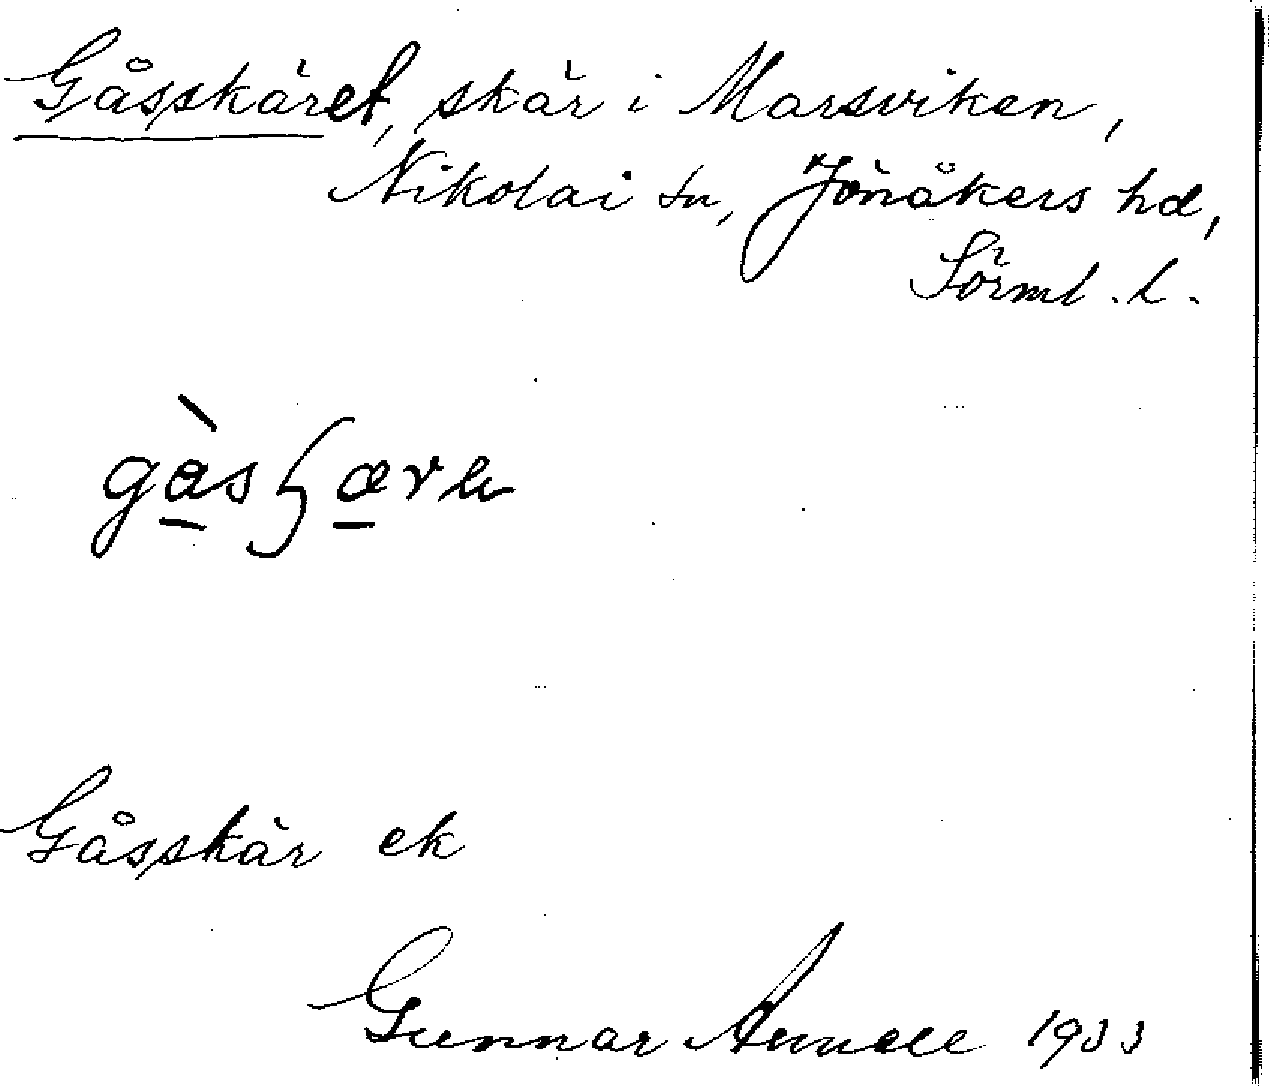 Gåsskäret, skär i Marsviken,
Nikolai sn, Jönåkers hd,
Sörml. l.
Gåsskär ek
Gunnar 1933